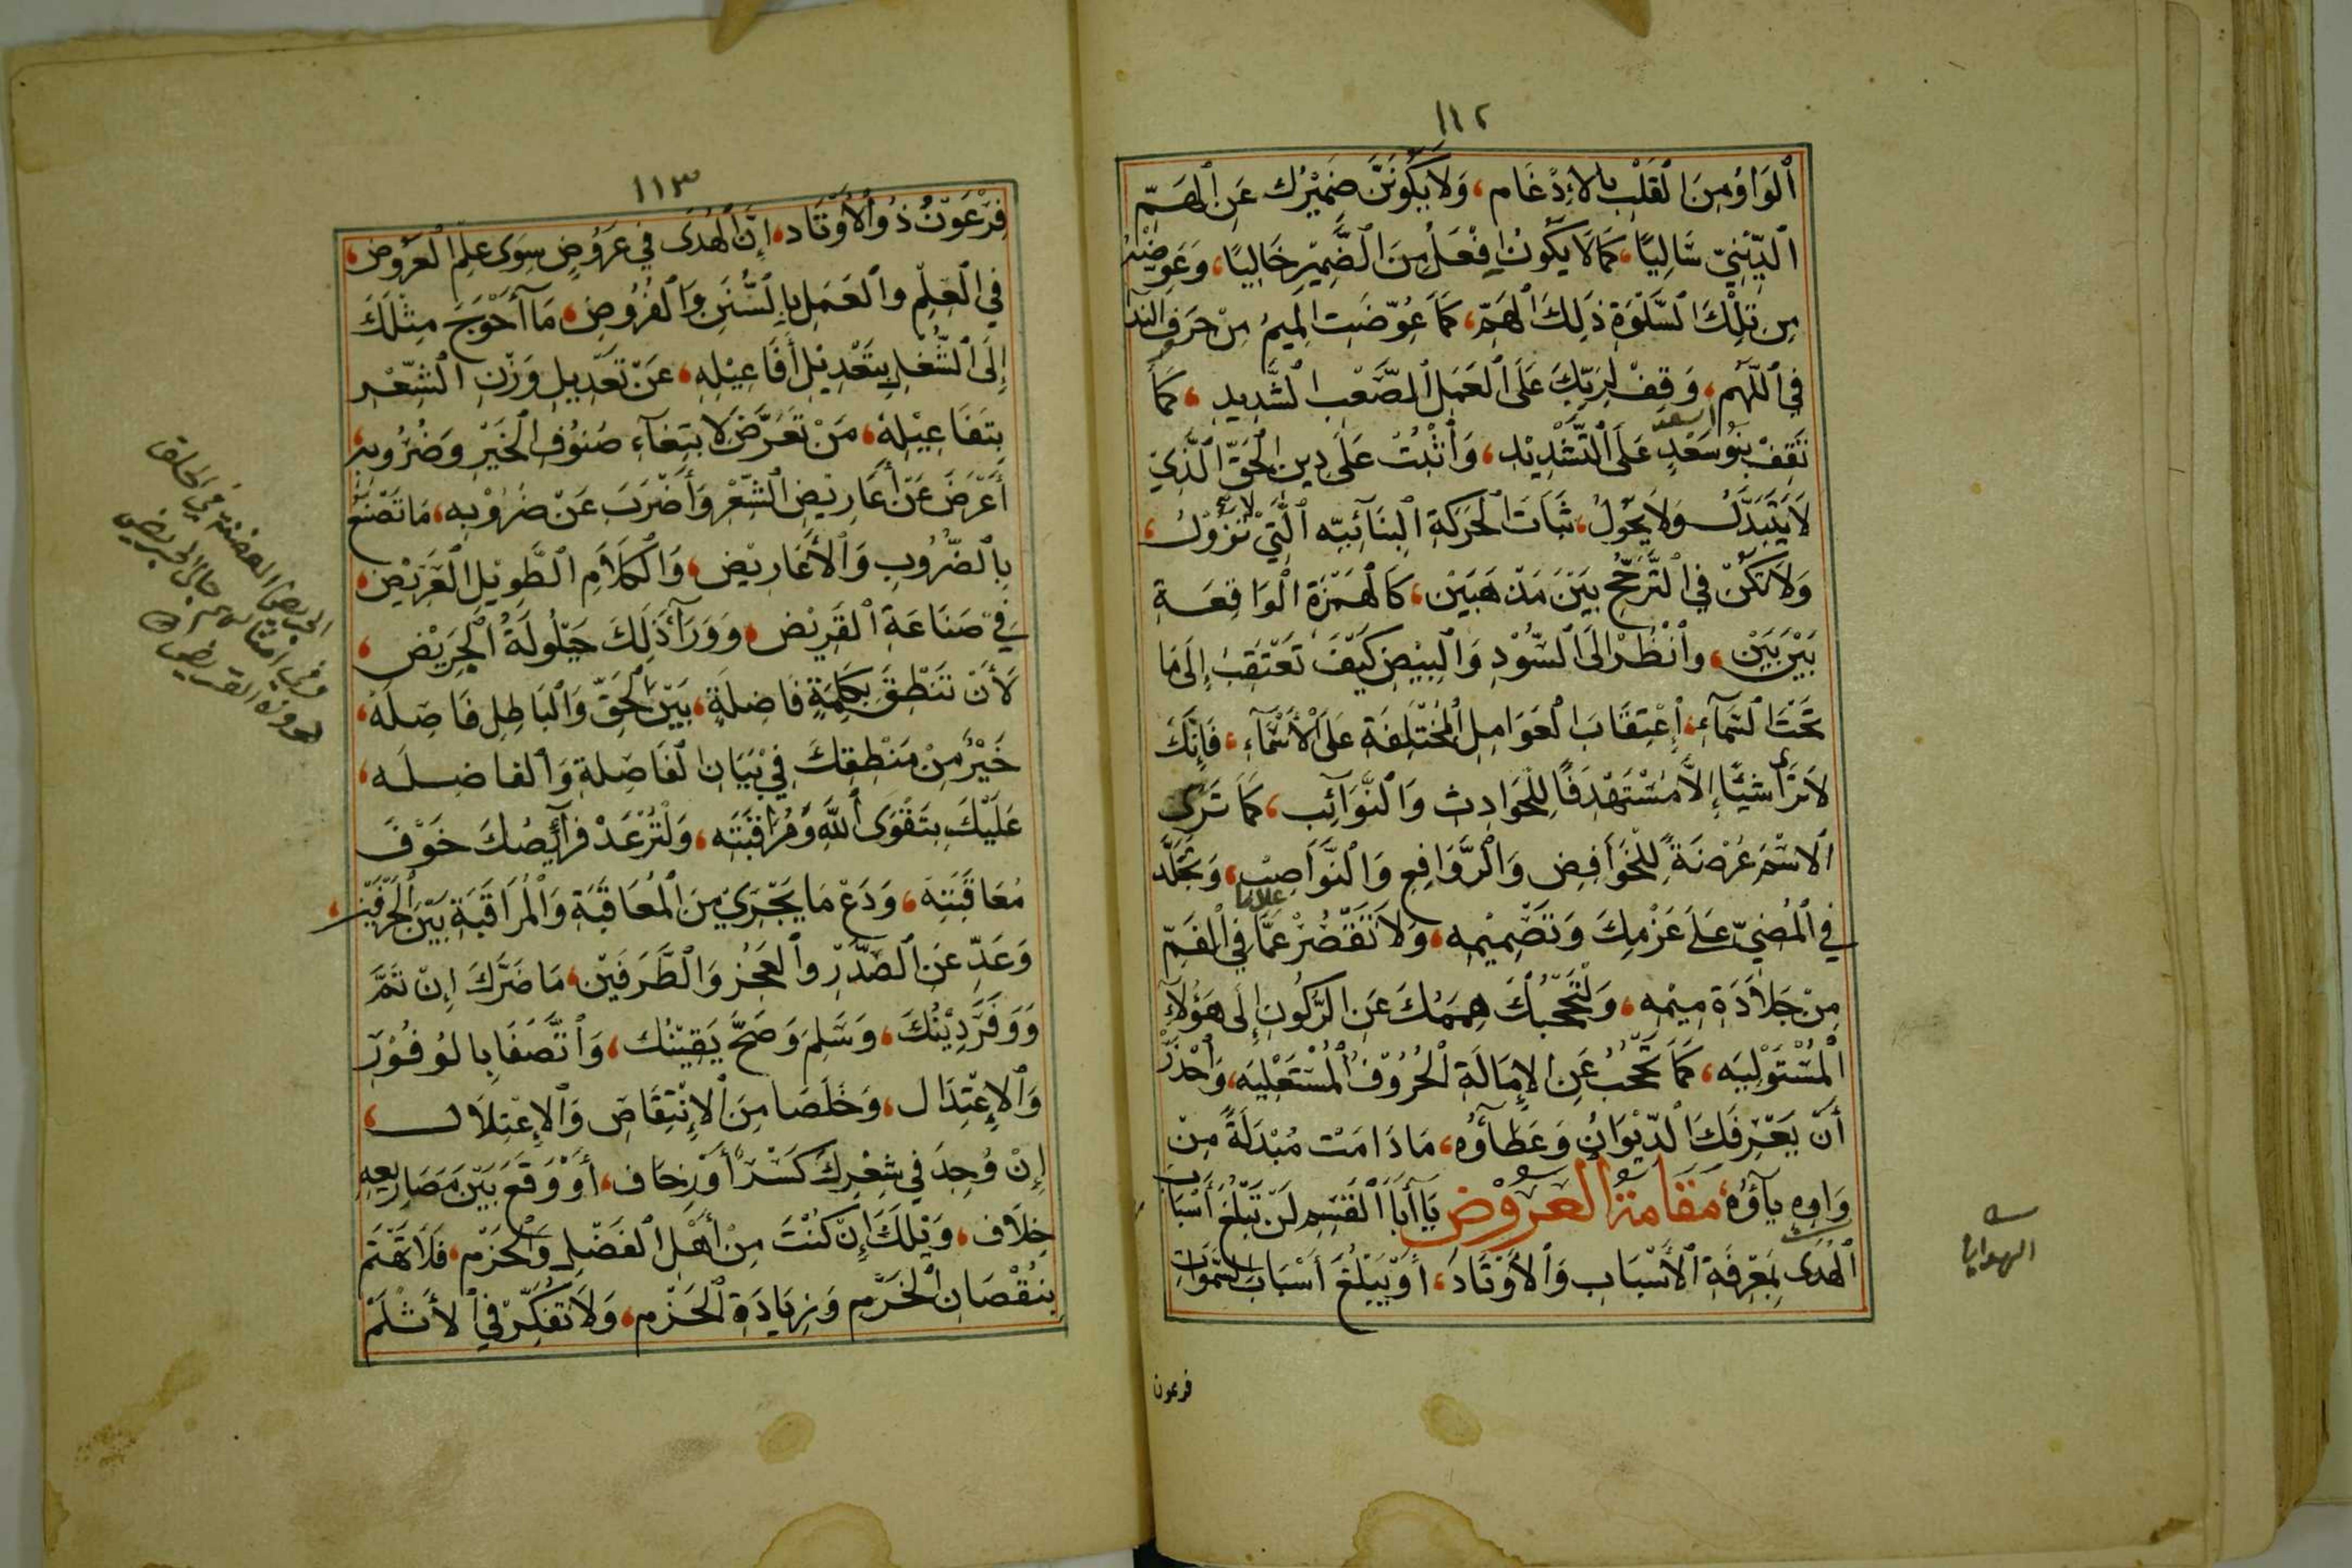 ١١٢
اَلْوَاوُ مِنَ الْقَلْبِ بِالْاِدْغَام، وَلَا يَكُونَنَّ ضَمِيْرُك عَنِ الْهَمِّ
الدِّيْنِيّ سَالِيًا، كَمَا لَا يَكُونُ اَفْعَلُ مِنَ الضَّمِيْرِ خَالِيًا، وَعَوِّضْهُ
مِن تِلْكَ السَّلْوَةِ ذَلِكَ الْهَمّ، كَمَا عُوِّضَت الْمِيمُ مِنْ حَرفِ الند
فِي اَللّٰهُم، وَقِفْ لِرَبِّكَ عَلَى الْعَمَلِ الصَّعْبِ الشَّدِيدِ، كَمَا
تَقِفْ بَنُو سَعْدٍ عَلَى التَّشْدِيْدِ، وَاثْبُتْ عَلَى دِينِ الْحَقِّ الَّذِيْ
لَا يَتَبَدَّل وَلَا يَحُوْلُ، ثَبَاتَ الْحَرَكَةِ الْبِنَائِيّه الَّتِيْ لا تَزُوْلُ،
وَلَا تَكُنْ فِي التَّرَجُّحِ بَيْنَ مَذْهَبَيْن، كَالْهَمْزَةِ الْوَاقِعَةِ
بَيْنَ بَيْن، وَانْظُرْ اِلَى السُّوْدِ وَالْبِيْضِ كَيْفَ تَعْتَقِبُ إِلَى مَا
تَحْتَ السَّمَاءِ، اِعْتِقَابَ الْعَوَامِلِ الْمُخْتَلِفَةِ عَلَى الْأَسْمَاءِ، فَإِنَّكَ
لَا تَرَى شَيْئًا إِلَّا مُسْتَهْدَفًا لِلْحَوَادِث وَالنَّوَائِب، كَمَا تَرَى
الْاسْمَ عُرْضَةً لِلْخَوَافِضِ وَالرَّوَافِعِ وَالنَّوَاصِبْ، وَتَجَلَّد
فِي الْمُضِيّ عَلَى عَزْمِكَ وَتَصْمِيْمِه، وَلَا تَقْصُرْ عَمَّا فِي الْفَمِّ
مِنْ جَلَادَةِ مِيْمِه، وَلْتَحْجُبْكَ هِمَمُكَ عَنِ الرُّكُونِ إِلَى هَؤُلَاءِ
الْمُسْتَوْلِيَه، كَمَا تَحْجُبُ عَنِ الْاِمَالَةِ الْحُرُوْفُ الْمُسْتَعْلِيَه، وَاحْذَرْ
أَنْ يَعْرِفَكَ الدِّيْوَانُ وَعَطَاؤُه، مَادَامَتْ مُبْدَلَةً مِنْ
وَاوِهِ يَاؤُهُ، مَقَامَةُ العَرُوْضِ يَا أَبَا الْقَسِمِ لَنْ تَبْلُغَ أَسْبَابَ
الْهُدَى بِمَعْرِفَةِ الْأَسْبَابِ وَالْأَوْتَادَ، أَوْ يَبْلُغَ أَسْبَابَ السَّمٰوَاتِ
فرعون
١١٣
فِرْعَوْنُ ذُو الْأَوْتَاد، إِنَّ الْهُدَى فِي عَرُوضٍ سِوَى عِلْمِ الْعَرُوض،
فِي الْعِلْمِ وَالْعَمَلِ بِالسُّنَنِ وَالْفُرُوضِ، مَا أَحْوَجَ مِثْلَكَ
إِلَى الشُّغْلِ بِتَعْدِيْلِ أَفَاعِيْلِهِ، عَنْ تَعْدِيلِ وَزْنِ الشِّعْرِ
بِتَفَاعِيْلِهْ، مَنْ تَعَرَّضَ لِابْتِغَاءِ صُنُوْفِ الْخَيْرِ وَضُرُوبِهِ،
أَعْرَضَ عَنْ أَعَارِيْضِ الشِّعْرِ وَأَضْرَبَ عَنْ ضُرُوْبِه، مَا تَصْنَعُ
بِالضُّرُوبِ وَالْأَعَارِيْضِ، وَالْكَلَامِ الطَّوِيْلِ الْعَرِيْضِ،
فِي صَنَاعَةِ الْقَرِيْضِ، وَوَرَاءَ ذَلِكَ حَيْلُولَةُ الْجَرِيْضِ،
لَأَنْ تَنْطِقَ بِكَلِمَةٍ فَاضِلَةٍ، بَيْنَ الْحَقِّ وَالْبَاطِلِ فَاصِلَهْ،
خَيْرٌ مِنْ مَنْطِقِكَ فِيْ بَيَانِ الْفَاصِلَةِ وَالْفَاضِلَه،
عَلَيْكَ بِتَقْوَى اللّٰهِ وَمُرَاقَبَتِه، وَلْتُرْعَدْ فَرَائِصُكَ خَوْفَ
مُعَاقَبَتِه، وَدَعْ مَا يَجْرِيْ مِنَ الْمُعَاقَبَةِ وَالْمُرَاقَبَةِ بَيْنَ الْحَرْفَيْن،
وَعَدِّ عَنِ الصَّدْرِ وَالْعَجُزِ وَالطَّرَفَيْن، مَا ضَرَّكَ إِنْ تَمَّ
وَوَفَرَ دِيْنُكَ، وَسَلِمَ وَصَحَّ يَقِيْنُك، وَاتَّصَفَا بِالْوُفُوْرِ
وَالْاِعْتِدَال، وَخَلَصَا مِنَ الْاِنْتِقَاصِ وَالْاِعْتِلَال،
إِنْ وُجِدَ فِي شِعْرِكَ كَسْرٌ أَوْ زِحَاف، أَوْ وَقَعَ بَيْنَ مَصَارِيعِهِ
خِلَاف، وَيْلَكَ إِنْ كُنْتَ مِنْ أَهْلِ الْفَضْلِ وَالْحَزْمِ، فَلَا تَهْتَمَّ
بِنُقْصَانِ الْخَرْمِ وَزِيَادَةِ الْخَزْم، وَلَا تُفَكِّرْ فِي الْأَثْلَمْ